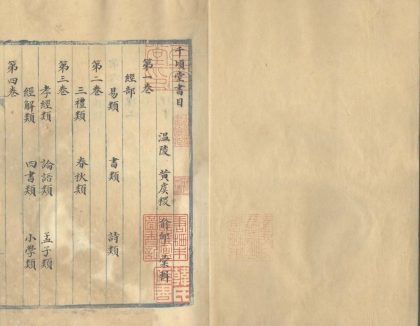 千頃堂書目
溫陵 黃虞稷 俞邰 彙輯
第一卷
經部
易類 書類 詩類
第二卷
三禮類 春秋類
第三卷
孝經類 論語類 孟子類
經解類 四書類 小學類
第四卷